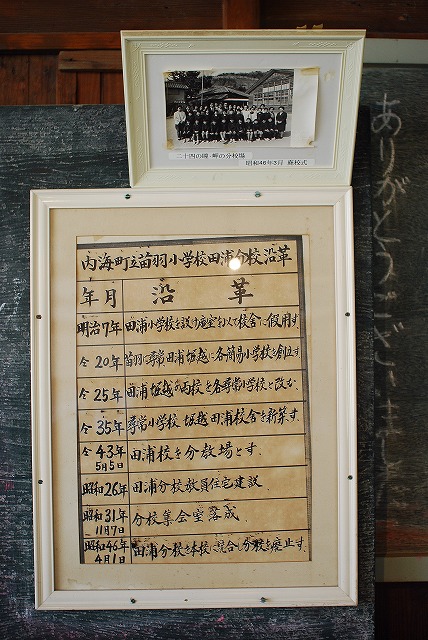 二十四の瞳・岬の分教場
昭和46年3月 廃校式
内海町立苗羽小学校田浦分校沿革
年月 沿革
明治7年 田浦小学校を設け庵室を以て校舎に仮用す
仝20年 苗羽に尋常 田浦 堀越に各簡易小学校を創立す
仝25年 田浦 堀越の両校を各尋常小学校と改む
仝35年 尋常小学校 堀越 田浦校舎を新築す
仝43年5月5日 田浦校を分教場とす
昭和26年 田浦分校教員住宅建設
昭和31年11月7日 分校集会室落成
昭和46年4月1日 田浦分校を本校に統合し分校を廃止す
ありがとうございました